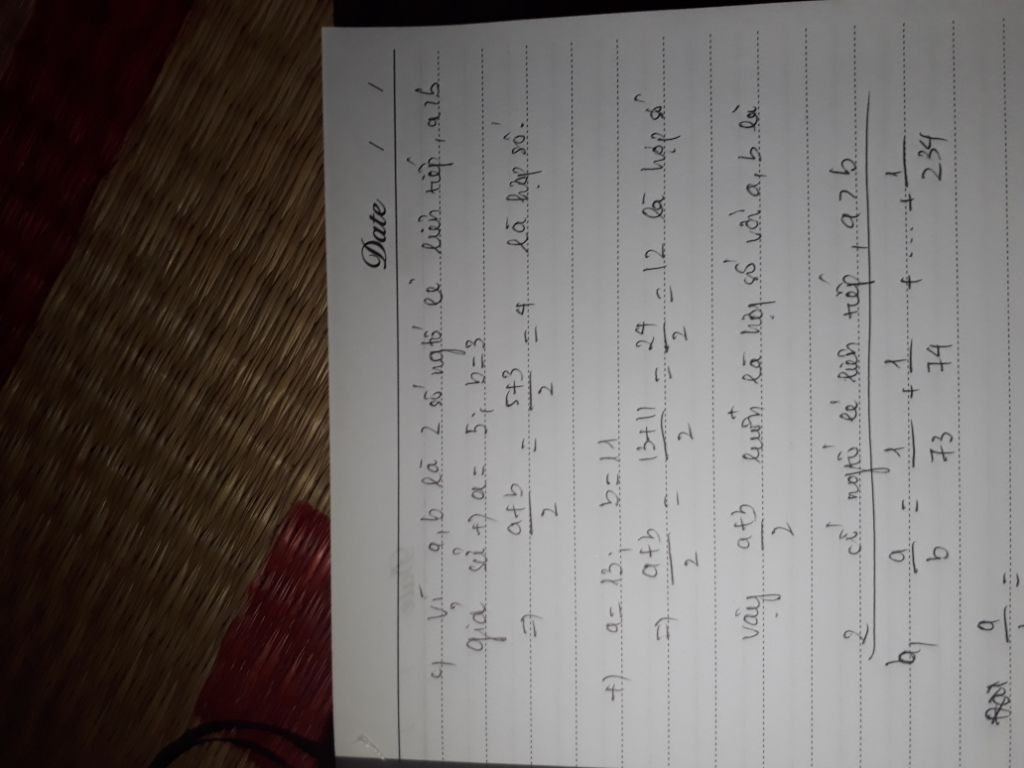 Date / /
c, Vì a, b là 2 số ngtố lẻ liên tiếp, a>b
giả sử +) a = 5; b=3
=) a+b/2 = 5+3/2 = 4 là hợp số.
+) a = 13; b=11
=) a+b/2 = 13+11/2 = 24/2 = 12 là hợp số
vậy a+b/2 luôn là hợp số với a, b là
2 số ngtố lẻ liên tiếp, a>b
b, a/b = 1/73 + 1/74 + ..... + 1/234
a =